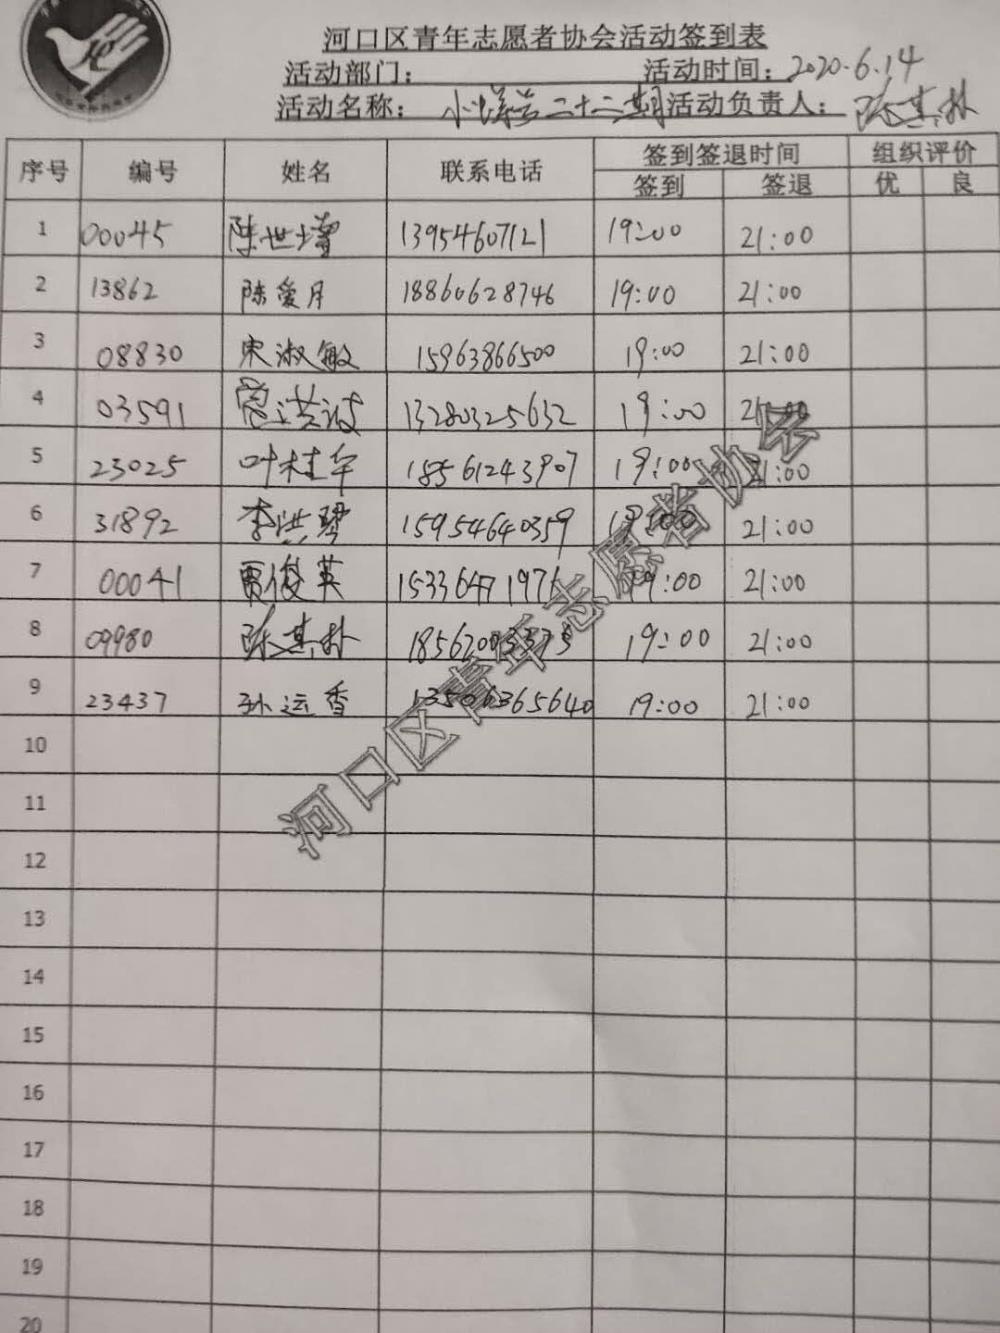 河口区青年志愿者协会活动签到表
活动部门： 活动时间：2020.6.14
活动名称： 二十二期 活动负责人：陈其朴
序号 编号 姓名 联系电话 签到签退时间 组织评价
签到 签退 优 良
1 00045 陈世增 13954607121 19:00 21:00
2 13862 陈爱月 18860628746 19:00 21:00
3 08830 宋淑敏 15963866500 19:00 21:00
4 03591 13280325632 19:00 21:00
5 23025 叶桂午 18561243907 19:00 21:00
6 31892 李洪琴 15954640359 19:00 21:00
7 00041 贾俊英 19:00 21:00
8 09980 陈其朴 19:00 21:00
9 23437 孙运香 19:00 21:00
10
11
12
13
14
15
16
17
18
19
20
河口区青年志愿者协会